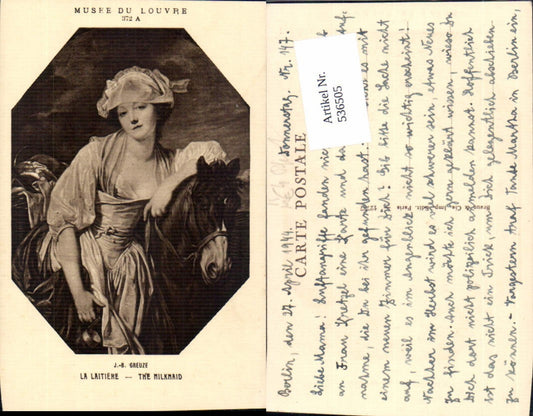 MUSÉE DU LOUVRE
372 A
J.-B. GREUZE
LA LAITIÈRE — THE MILKMAID
Artikel Nr.
536505
CARTE POSTALE
Braun & Cie, Imp.-Édit. Paris
Berlin, den 27. April 1944. Donnerstag. Nr. 147.
Liebe Mama! Luftangriffe fanden
an Frau Kretzel eine Karte und
nahme, die Du bei ihr gefunden hast. es mit
einem neuen Zimmer für Dich? Gib bitte die Sache nicht
auf, weil es im Augenblick nicht so wichtig erscheint!
Nachher im Herbst wird es viel schwerer sein, etwas Neues
zu finden. Auch möchte ich gern geklärt wissen, wieso Du
Dich dort nicht polizeilich abmelden kannst. Hoffentlich
ist das nicht ein Trick, um Dich gelegentlich abschieben
zu können. - Vorgestern traf Tante Martha in Berlin ein,